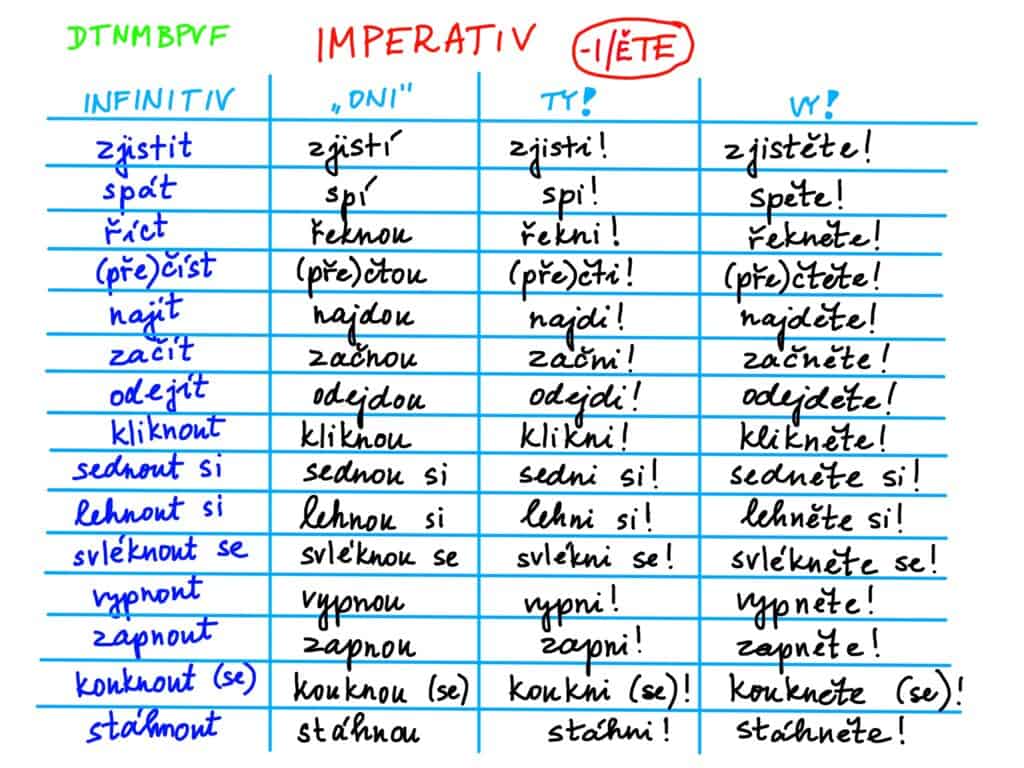 DTNMBPVF IMPERATIV -I/ĚTE
INFINITIV „ONI" TY! VY!
zjistit zjistí zjisti! zjistěte!
spát spí spi! spěte!
říct řeknou řekni! řekněte!
(pře)číst (pře)čtou (pře)čti! (pře)čtěte!
najít najdou najdi! najděte!
začít začnou začni! začněte!
odejít odejdou odejdi! odejděte!
kliknout kliknou klikni! klikněte!
sednout si sednou si sedni si! sedněte si!
lehnout si lehnou si lehni si! lehněte si!
svléknout se svléknou se svlékni se! svlékněte se!
vypnout vypnou vypni! vypněte!
zapnout zapnou zapni! zapněte!
kouknout (se) kouknou (se) koukni (se)! koukněte (se)!
stáhnout stáhnou stáhni! stáhněte!